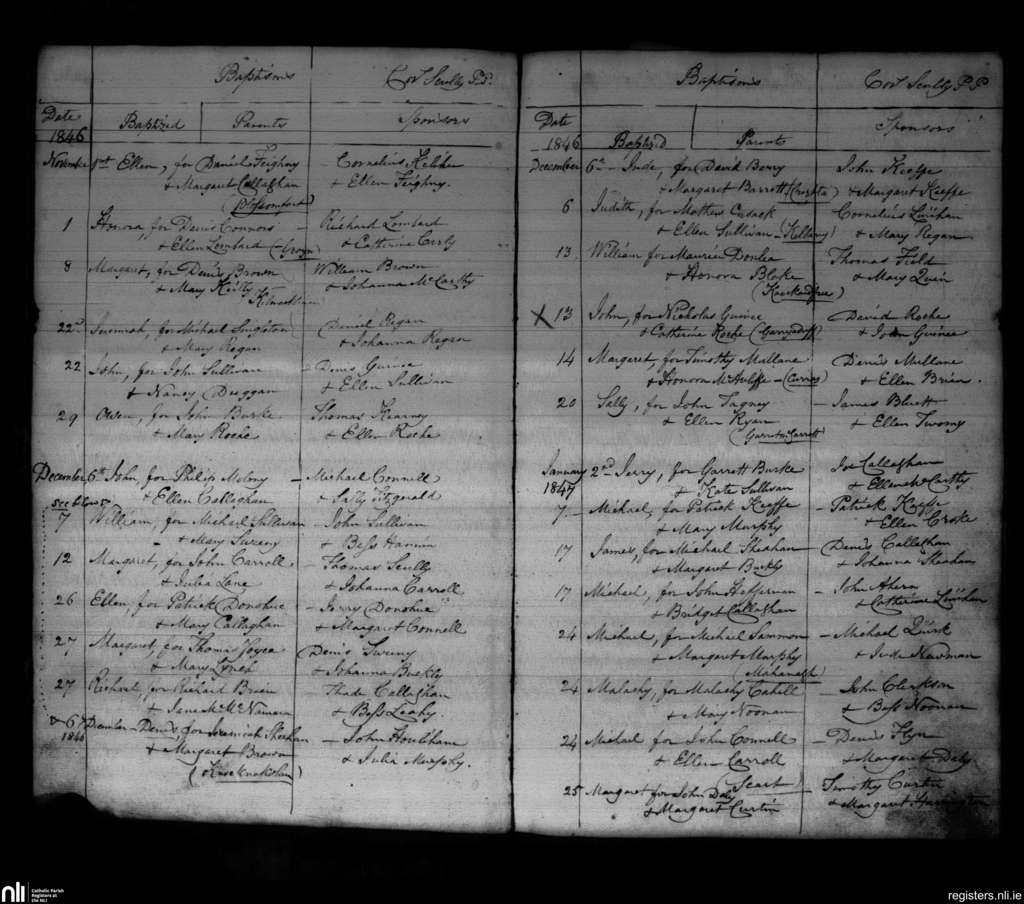 Baptisms Corˢ Scully P.P.
Date
1846 Baptized Parents Sponsors
November 1st Ellen, for Daniel Feighny Cornelius
& Margaret Callaghan & Ellen Feighny.
1 Honora, for Denis Connors – Richard Lombard
& Ellen Lombard & Catherine
8 Margaret, for Denis Brown William Brown
& Mary Reilly & Johanna McCarthy
22d Jeremiah, for Michael Singleton Daniel Regan
& Mary Regan & Johanna Regan
22 John, for John Sullivan – Denis Guinee
& Nancy Duggan & Ellen Sullivan
29 Owen, for John Burke Thomas Kearney
& Mary Roche & Ellen Roche
December 6th John, for Philip Molony – Michael Connell
& Ellen Callaghan & Sally Fitzgerald
see below
7 William, for Michael Sullivan – John Sullivan
& Mary Sweeny & Bess
12 Margaret, for John Carroll – Thomas Scully
& Julia Lane & Johanna Carroll
26 Ellen, for Patrick Donohue – Jerry Donohue
& Mary Callaghan & Margaret Connell
27 Margaret, for Thomas Joyce Denis Sweeny
& Mary Lynch & Johanna Buckly
27 Richard, for Richard Brien Thade Callaghan
& Jane McNamara & Bess Leahy.
6th December – Denis, for Jeremiah Sheehan – John Houlihan
1846 & Margaret Brown & Julia Murphy.
Baptisms Corˢ Scully P P
Date
1846 Baptized Parents Sponsors
December 6th – Jude, for David Barry John Keeffe
& Margaret Barrett & Margaret Keeffe
6 Judith, for Mathew Cusack Cornelius Linehan
& Ellen Sullivan – & Mary Regan
13 William for Maurice Donlea Thomas Field
& Honora Blake & Mary Quin
X 13 John, for Nicholas Guinee David Roche
& Catherine Roche (Garryduff) & Joan Guinee
14 Margaret, for Timothy Mullane Denis Mullane
& Honora McAuliffe – (Curras) & Ellen Brien.
20 Sally, for John Tagney – James Bluett
& Ellen Ryan & Ellen Twomy
January 2nd Jerry, for Garrett Burke Joe Callaghan
1847 & Kate Sullivan & Ellen McCarthy
7 – Michael, for Patrick Keeffe – Patrick Keeffe
& Mary Murphy & Ellen Croke
17 James, for Michael Sheahan – Denis Callaghan
& Margaret Buckly & Johanna Sheahan
17 Michael, for John Heffernan – John Ahern
& Bridget Callaghan & Catherine Linehan
24 Michael, for Michael Sammon – Michael Quirk
& Margaret Murphy & Jude Newman
24 Malachy, for Malachy Cahill John Clerkson
& Mary Noonan & Bess Noonan
24 Michael for John Connell – Denis Flyn
& Ellen Carroll & Margaret Daly
(Scart)
25 Margaret for John Daly Timothy Curtin
& Margaret Curtin & Margaret Harrington
nli Catholic Parish
Registers at
the NLI
registers.nli.ie